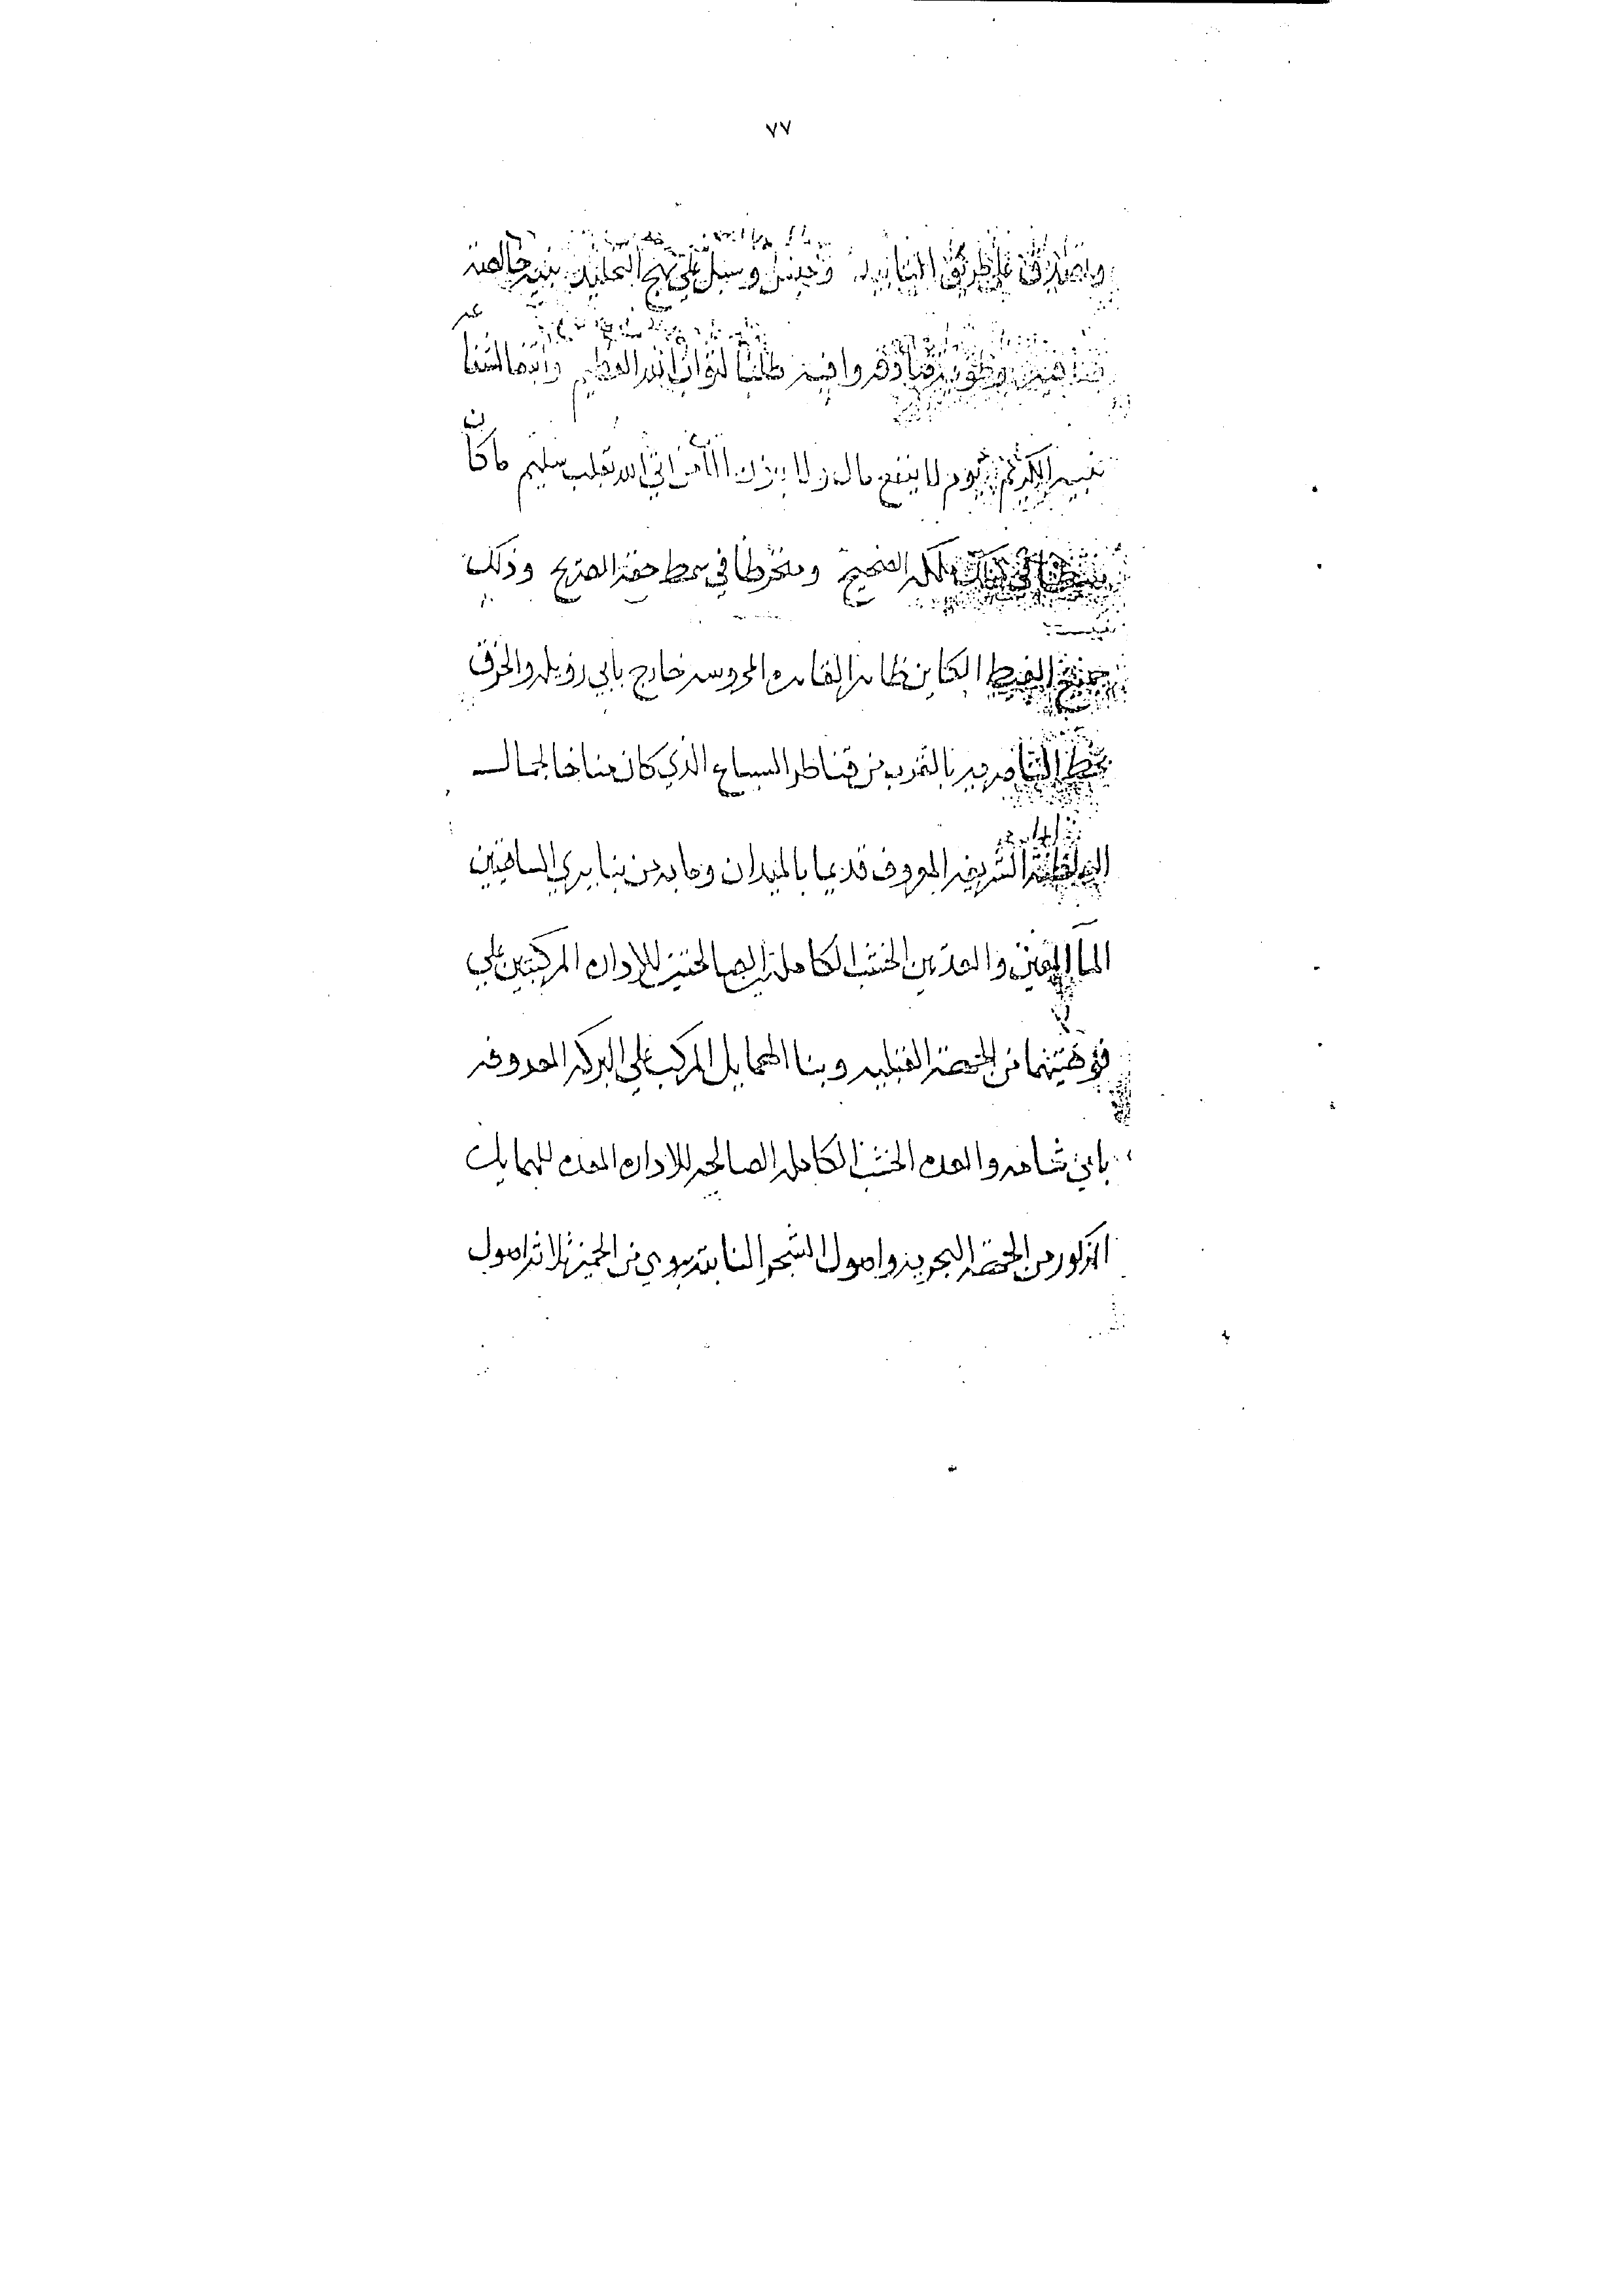 ٧٧
وتصدق على طريق التابيد وحبس وسبل على نهج التخليد بنيه خالصة
صادقه وافيه طلبا لثواب الله العظيم وابتغا لشفاعه
نبيه الكريم يوم لا ينفع مال ولا بنون الا من اتى الله بقلب سليم ما كان
ملكه الصحيح ومنخرطا في سمط حقه الصريح وذلك
جميع الغيط الكاين ظاهر القاهره المحروسه خارج بابي زويله والخرق
بخط بالقرب من قناطر السباع الذي كان مناخا لجمال
السلطنة الشريفه المعروف قديما بالميدان وما به من بنا بيري الساقيتين
الما المعين والعدتين الخشب الكاملتين الصالحتين للاداره المركبتين على
فوهتيهما من الجهة القبليه وبنا الهمايل المركب على البركه المعروفه
بابي شامه والعده الخشب الكامله الصالحه للاداره المعده للهمايل
المذكور من الجهة البحريه واصول الشجر النابته بهوي من الجميز ثلاثه اصول